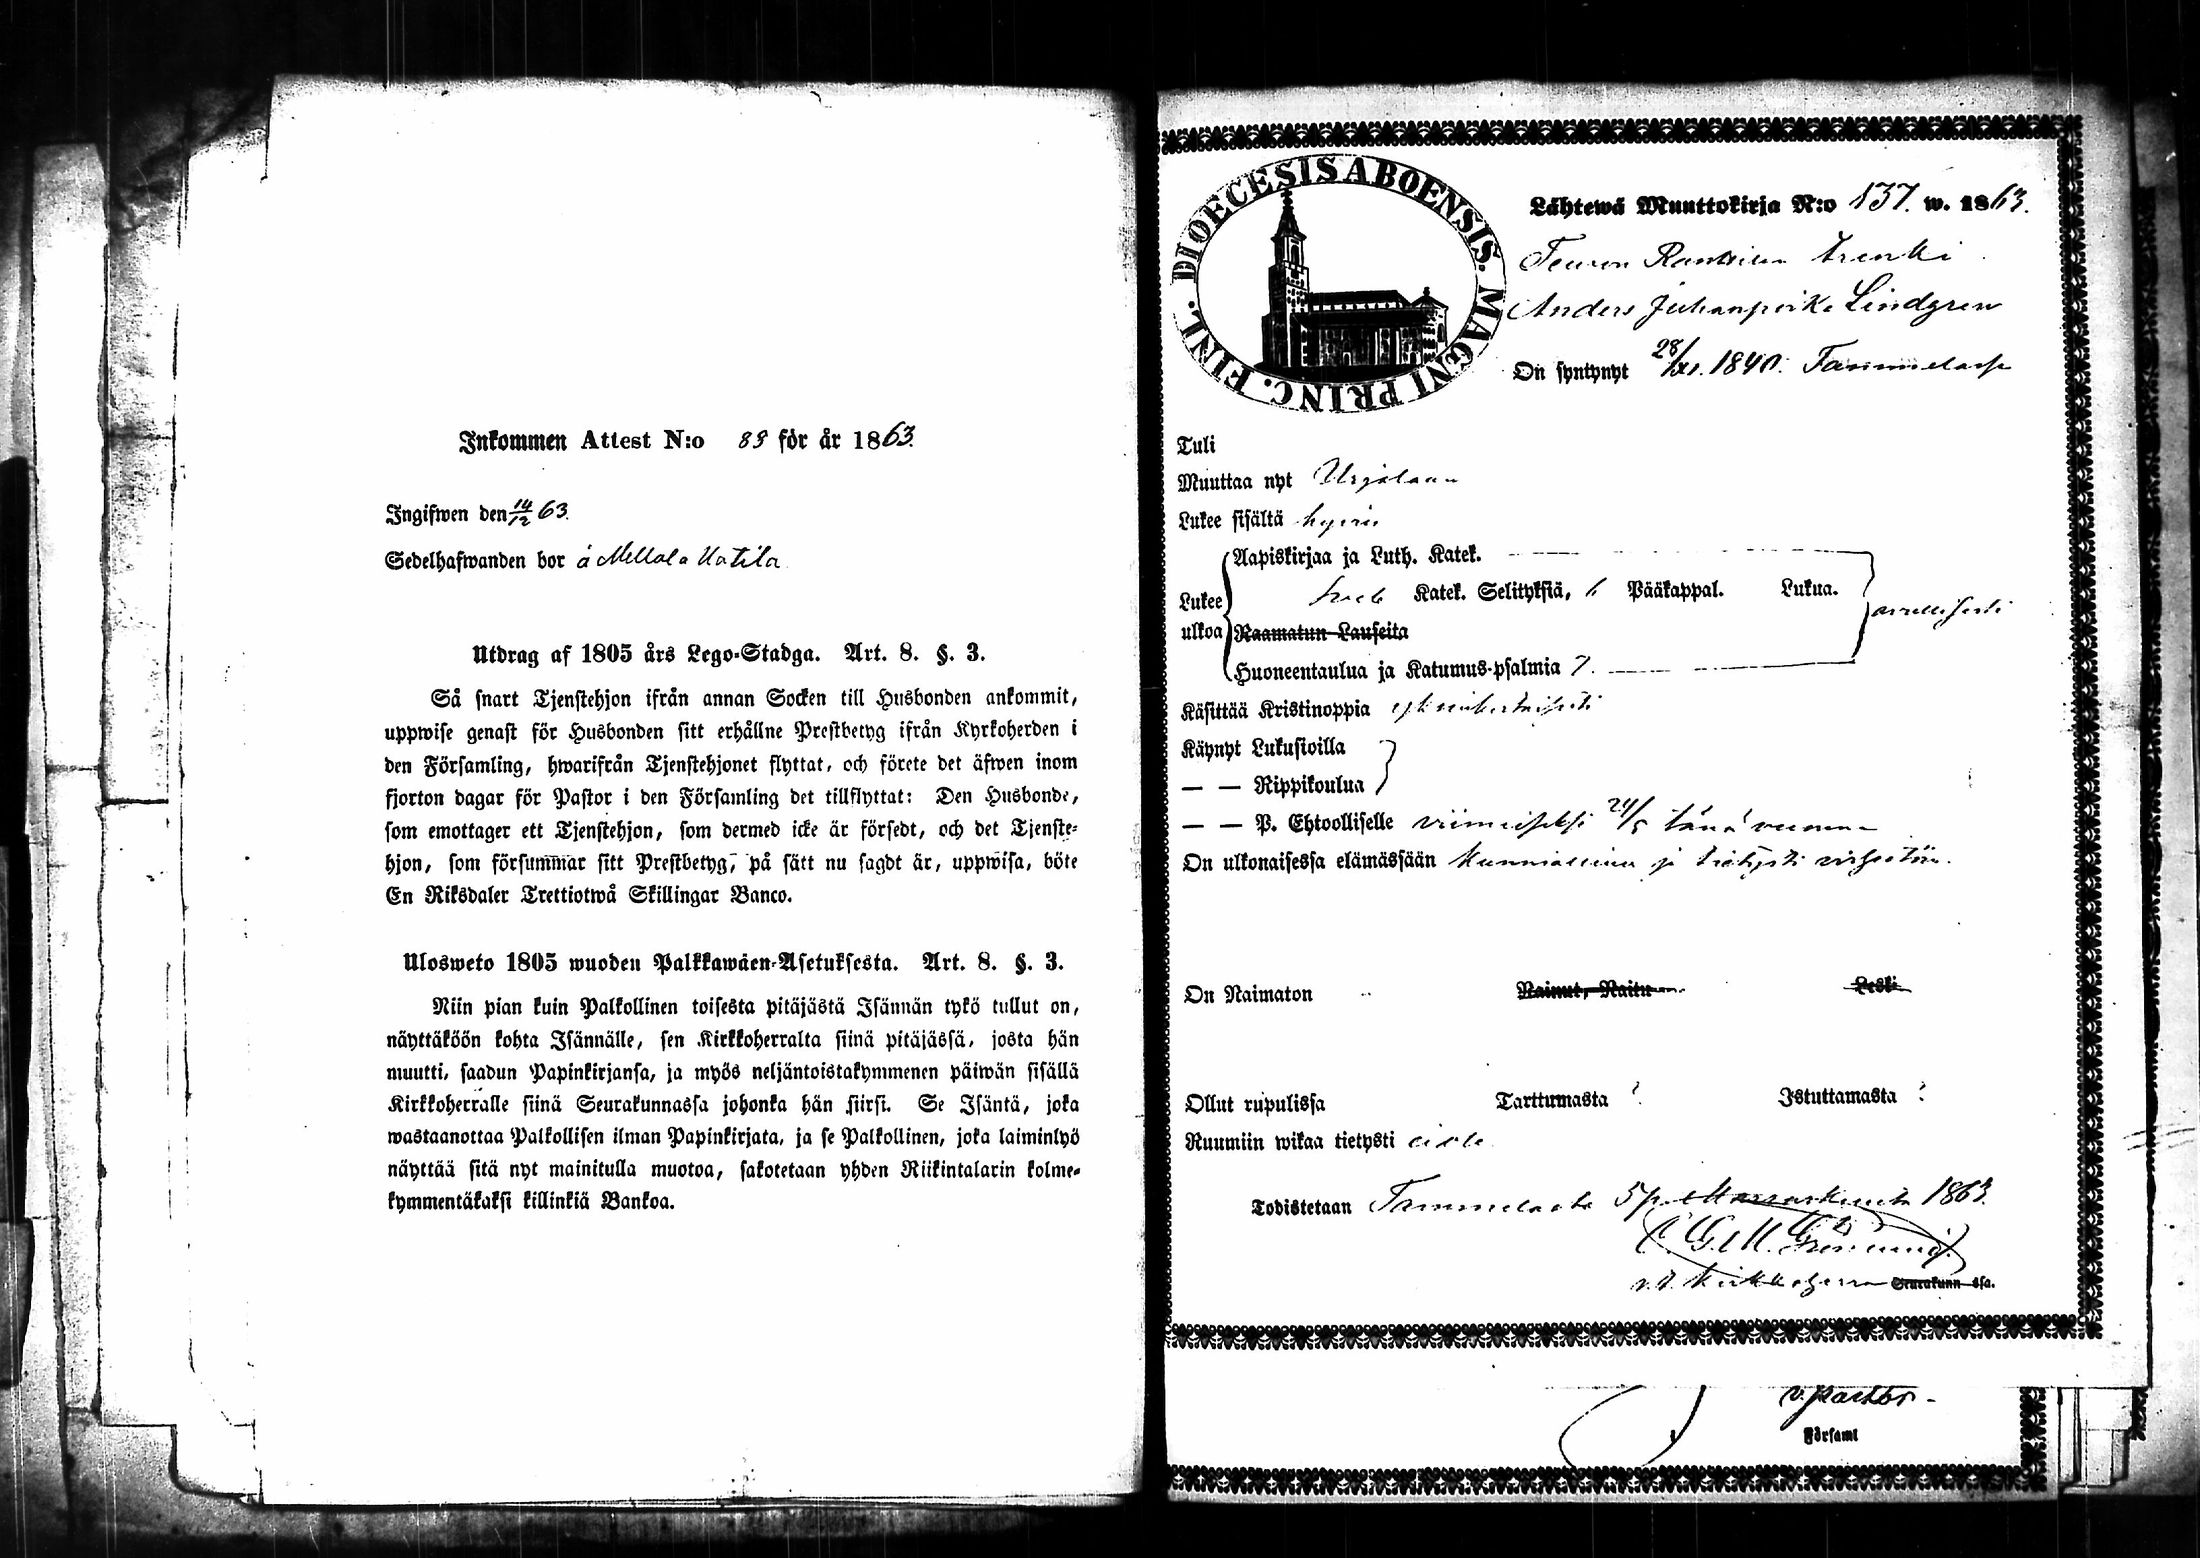 Inkommen Attest N:o 89 för år 1863.
Ingifwen den 14/12 63.
Sedelhafwanden bor å Mellola Uotila
Utdrag af 1805 års Lego-Stadga. Art. 8. §. 3.
Så snart Tjenstehjon ifrån annan Socken till Husbonden ankommit,
uppwise genast för Husbonden sitt erhållne Prestbetyg ifrån Kyrkoherden i
den Församling, hwarifrån Tjenstehjonet flyttat, och förete det äfwen inom
fjorton dagar för Pastor i den Församling det tillflyttat: Den Husbonde,
som emottager ett Tjenstehjon, som dermed icke är försedt, och det Tjenste-
hjon, som försummar sitt Prestbetyg, på sätt nu sagdt är, uppwisa, böte
En Riksdaler Trettiotwå Skillingar Banco.
Ulosweto 1805 wuoden Palkkawäen-Asetuksesta. Art. 8. §. 3.
Niin pian kuin Palkollinen toisesta pitäjästä Isännän tykö tullut on,
näyttäköön kohta Isännälle, sen Kirkkoherralta siinä pitäjässä, josta hän
muutti, saadun Papinkirjansa, ja myös neljäntoistakymmenen päiwän sisällä
Kirkkoherralle siinä Seurakunnassa johonka hän siirsi. Se Isäntä, joka
wastaanottaa Palkollisen ilman Papinkirjata, ja se Palkollinen, joka laiminlyö
näyttää sitä nyt mainitulla muotoa, sakotetaan yhden Riikintalarin kolme-
kymmentäkaksi killinkiä Bankoa.
DIOECESIS ABOENSIS. MAGNI PRINC. FINL.
Lähtewä Muuttokirja N:o 137. w. 1863.
Teuron Rankilan Trenki
Anders Juhanpoika Lindgren
On syntynyt 28/XI. 1840. Tammelassa
Tuli
Muuttaa nyt Urjalaan
Lukee sisältä hywin
Aapiskirjaa ja Luth. Katek.
Lukee ulkoa Sveb Katek. Selityksiä, 6 Pääkappal. Lukua.
Raamatun Lauseita
Huoneentaulua ja Katumus-psalmia 7.
Käsittää Kristinoppia yksinkertaisesti
Käynyt Lukusioilla
— — Rippikoulua
— — P. Ehtoolliselle viimeiseksi 24/5 tänä vuonna
On ulkonaisessa elämässään kunniallinen ja tietysti
On Naimaton Nainut, Naitu Leski
Ollut rupulissa Tarttumasta ? Istuttamasta ?
Ruumiin wikaa tietysti ei ole
Todistetaan Tammelasta 5 p. Marraskuuta 1863.
v.t. Kirkkoherra Seurakunn ssa.
v. pastor
Församl